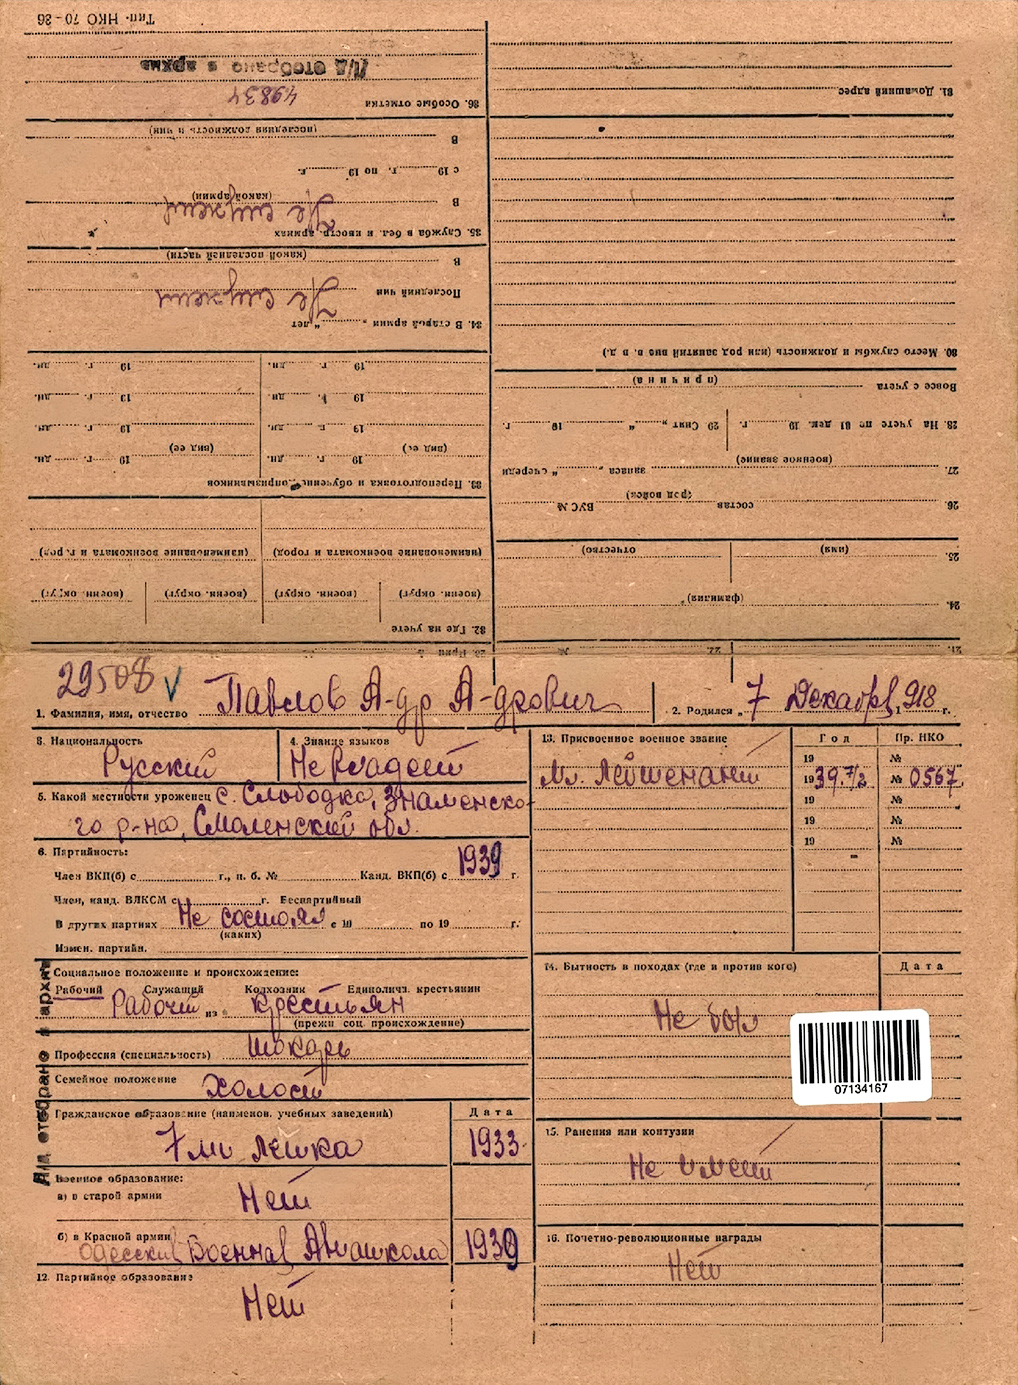 Тип. НКО 70-36
Л/Д отобрано в архив
49834
36. Особые отметки
(последняя должность и чин)
В
с 19 г. по 19 г.
(какой армии)
В
Не служил
35. Служба в бел. и иностр. армиях
(какой последней части)
В
Последний чин
Не служил
34. В старой армии „ “ лет
19 г. дн. 19 г. дн.
19 г. дн. 19 г. дн.
19 г. дн. 19 г. дн.
(вид ее) (вид ее)
19 г. дн. 19 г. дн.
33. Переподготовка и обучение допризывников
(наименование военкомата и город) (наименование военкомата и город)
(военн. округ) (военн. округ) (военн. округ) (военн. округ)
32. Где на учете
31. Домашний адрес
30. Место службы и должность (или род занятий вне в. в д.)
(причина)
Вовсе с учета
28. На учете по 31 дек. 19 г. 29 Снят „ “ 19 г.
(военное звание)
27. запаса „ “ очереди
(род войск)
26. состав ВУС №
25. (имя) отчество)
24. (фамилия)
21. 22. №
29508 V
1. Фамилия, имя, отчество Павлов А-др А-дрович 2. Родился „7 Декабря 1918 г.
3. Национальность Русский
4. Знание языков Не владеет
5. Какой местности уроженец с. Слободка, Знаменско-
го р-на, Смоленский обл.
6. Партийность:
Член ВКП(б) с г., п. б. № Канд. ВКП(б) с 1939 г.
Член, канд. ВЛКСМ с г. Беспартийный
В других партиях Не состоял с 19 по 19 г.
(каких)
Измен. партийн.
Социальное положение и происхождение:
Рабочий Служащий Колхозник Единоличн. крестьянин
Рабочий из крестьян
(прежн соц. происхождение)
Профессия (специальность) токарь
Семейное положение Холост
Гражданское образование (наименов. учебных заведений) Дата
7ми летка 1933
Военное образование:
а) в старой армии Нет
б) в Красной армии Одесския Военная Авиашкола 1939
12. Партийное образование
Нет
Л/Д отобрано в архив
13. Присвоенное военное звание Год Пр. НКО
19 №
Мл. Лейтенант 1939. 7/2 № 0567
19 №
19 №
19 №
14. Бытность в походах (где и против кого) Дата
Не был
07134167
15. Ранения или контузии
Не имеет
16. Почетно-революционные награды
Нет